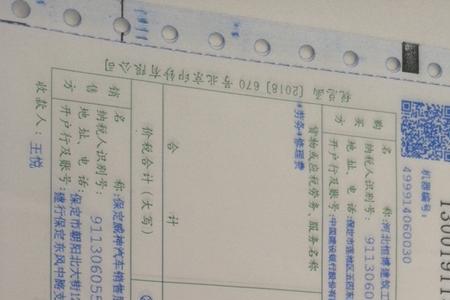 13001911
机器编号:
499914060030
购买方
名 称:河北恒博建筑工
纳税人识别号:
地址、电话:保定市莲池区五四东
开户行及账号:中国建设银行股份有
货物或应税劳务、服务名称
*劳务*修理费
合 计
价税合计(大写)
销售方
名 称:保定威神汽车销售服
纳税人识别号:91130605
地址、电话:保定市朝阳北大街12
开户行及账号:建行保定东风中路支
收款人:王悦
税总函[2018]670号北京印钞有限公司